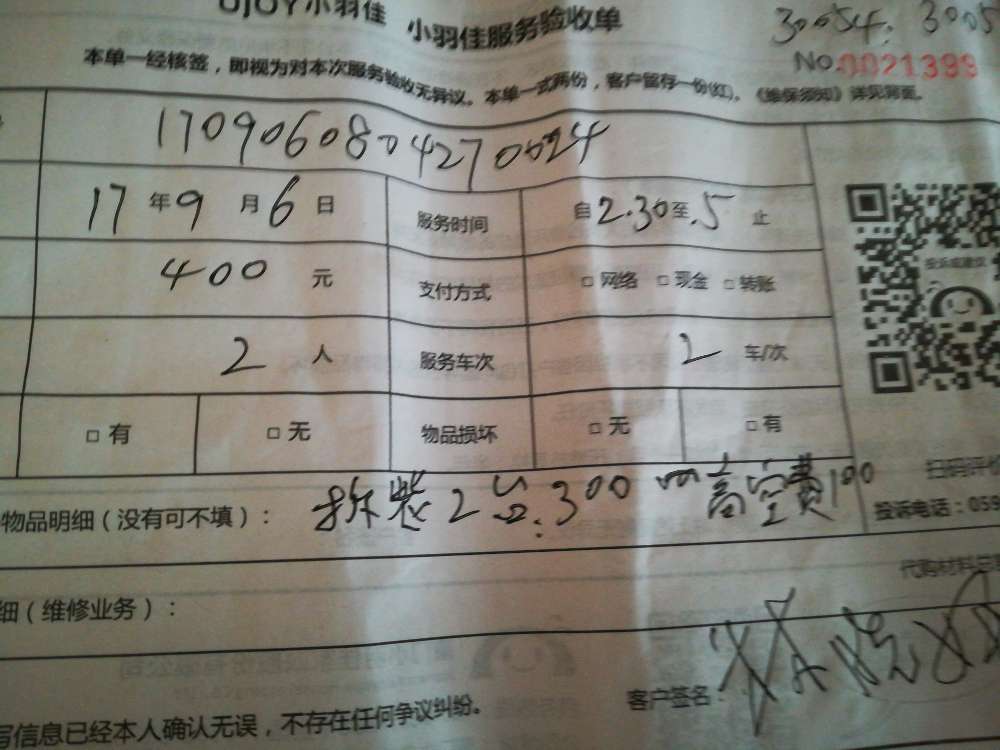 OJOY小羽佳 小羽佳服务验收单 30054. 3005
No.0021399
本单一经核签，即视为对本次服务验收无异议。本单一式两份，客户留存一份(红)。《维保须知》详见背面。
1709060804270024
17年9月6日 服务时间 自2.30至.5止
400元 支付方式 □网络 □现金 □转账
投诉或建议
2人 服务车次 2车/次
□有 □无 物品损坏 □无 □有
扫码评价
物品明细（没有可不填）： 拆装2台.300 高空费100 投诉电话：059
代购材料总
细（维修业务）：
客户签名：
写信息已经本人确认无误，不存在任何争议纠纷。